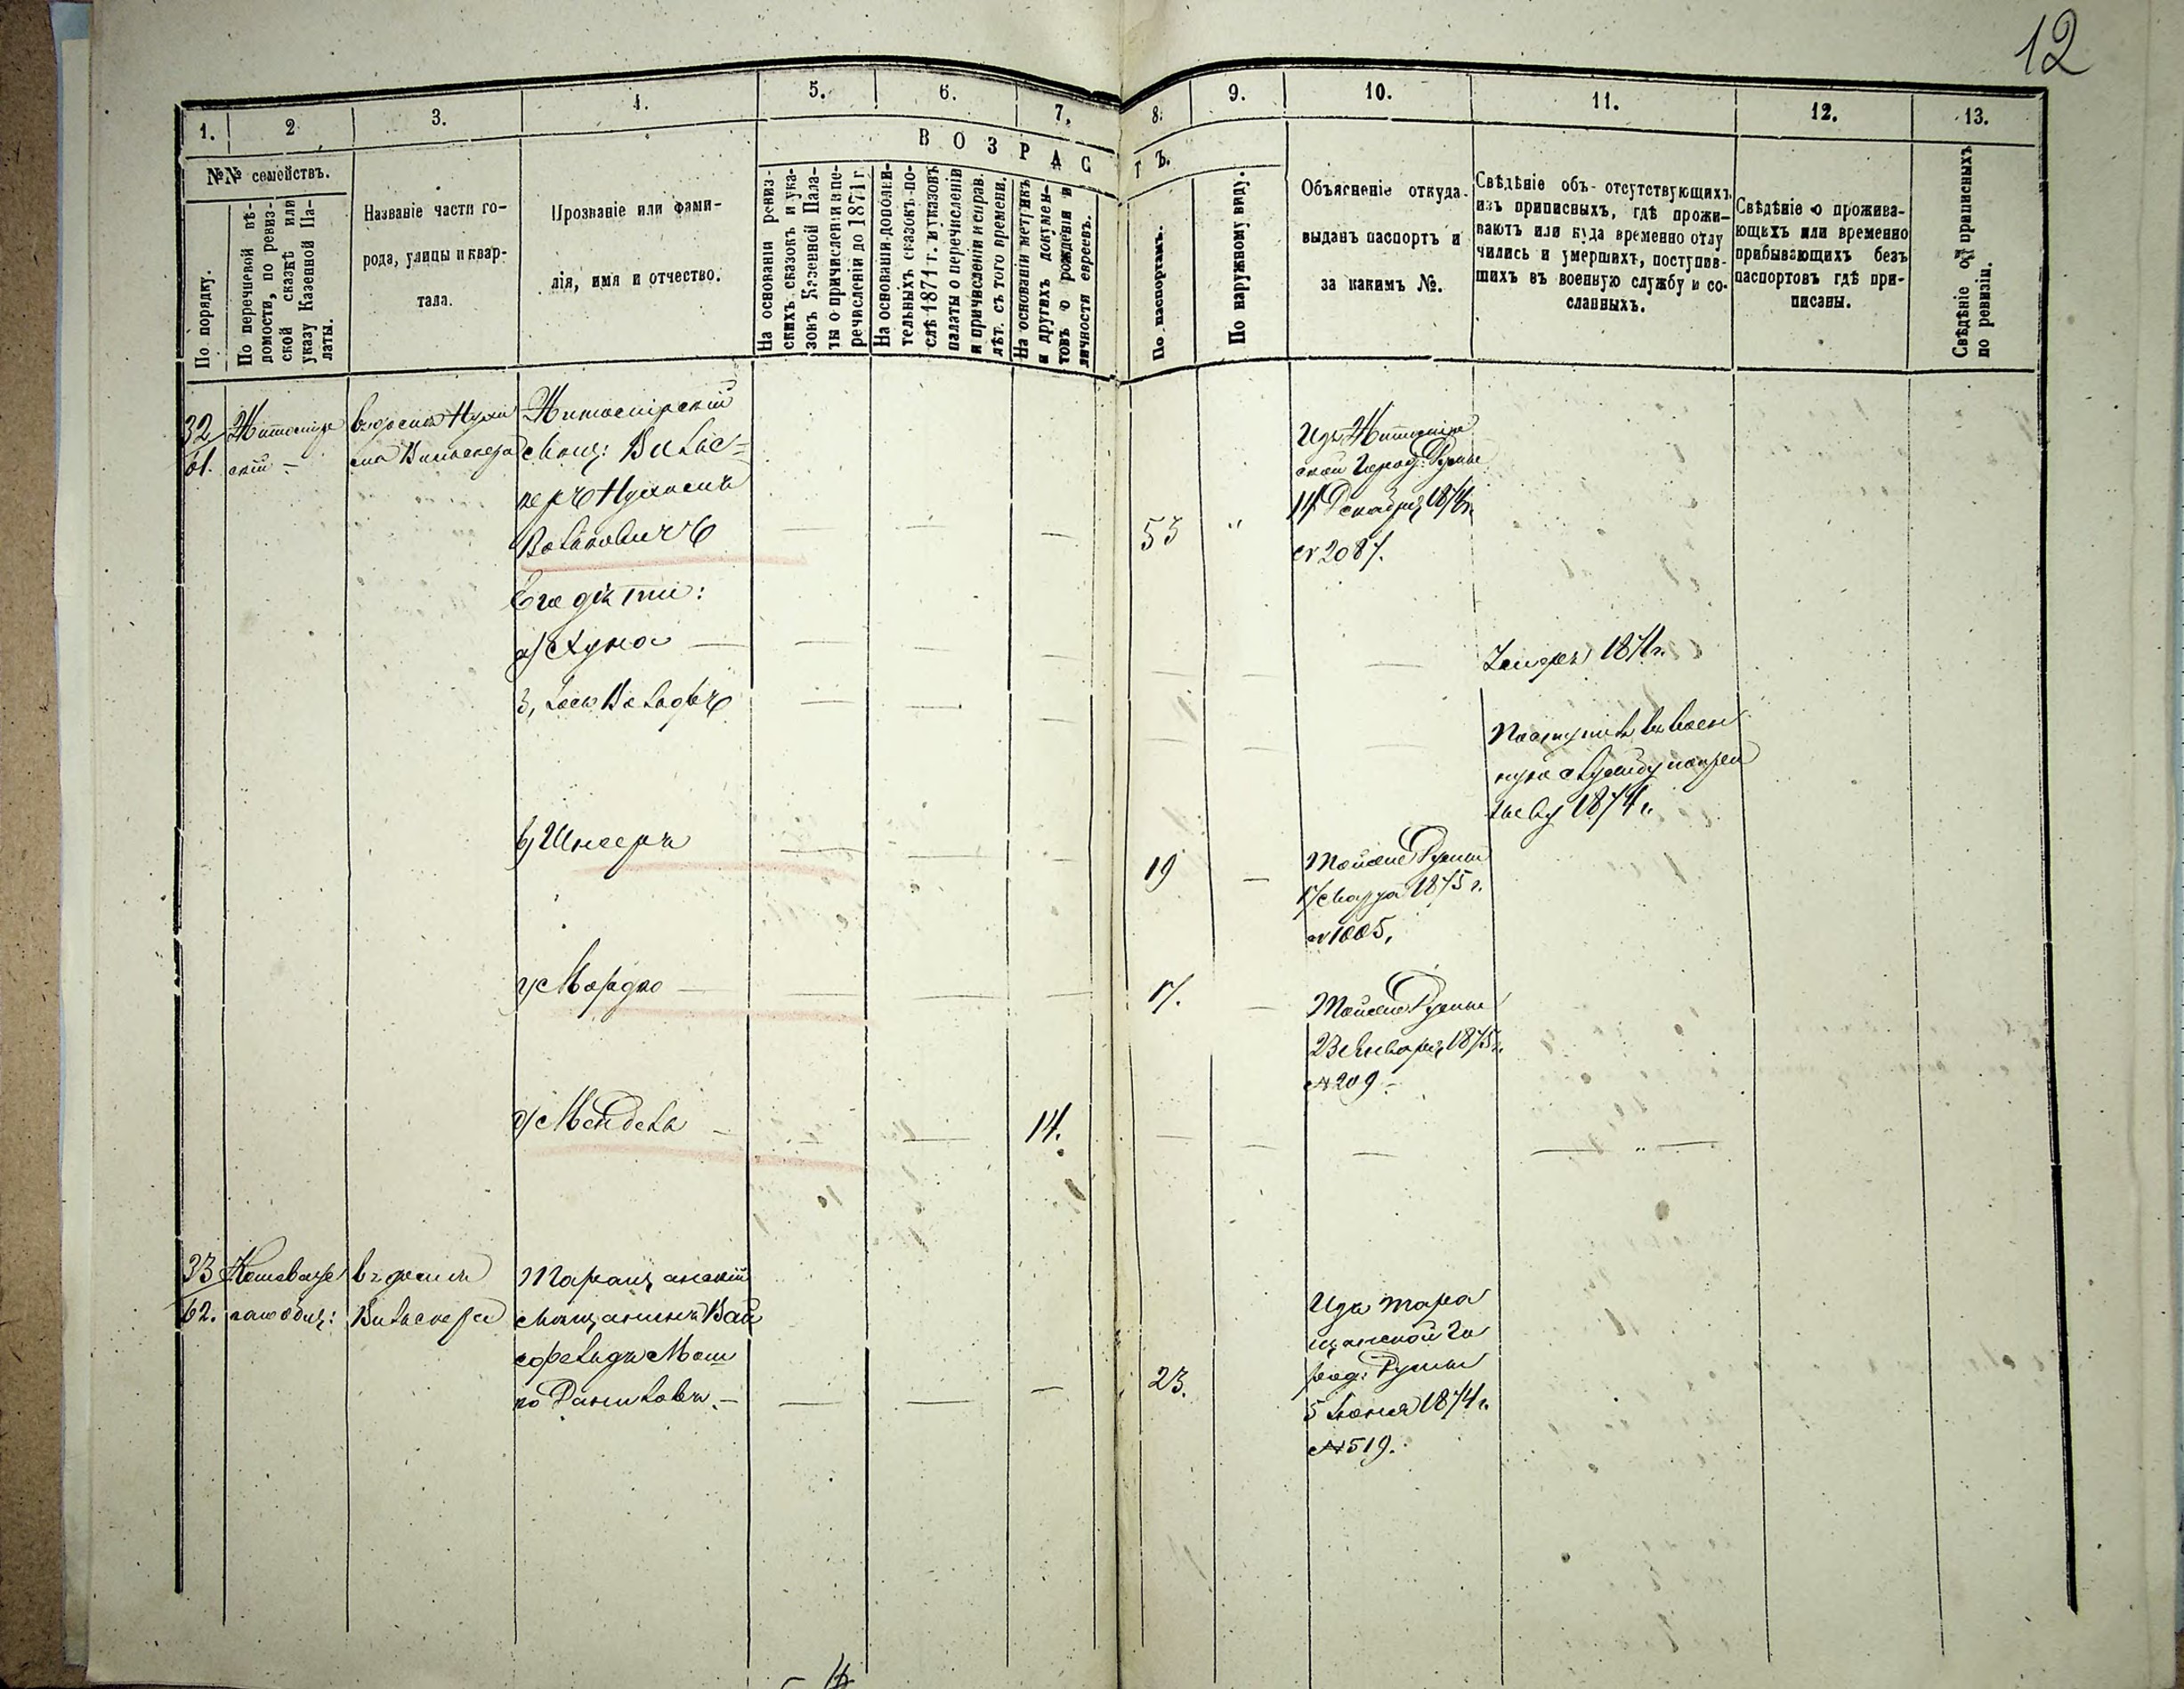 12
1. 2 3. 4. 5. 6. 7. 8. 9. 10. 11. 12. 13.
ВОЗРАСТЪ.
№№ семействъ.
По порядку.
По перечневой вѣ-
домости, по ревиз-
ской сказкѣ или
указу Казенной Па-
латы.
Названіе части го-
рода, улицы и квар-
тала.
Прозваніе или фами-
лія, имя и отчество.
На основаніи ревиз-
скихъ сказокъ и ука-
зовъ Казенной Пала-
ты о причисленіи и пе-
речисленіи до 1871 г.
На основаніи дополни-
тельныхъ сказокъ по-
слѣ 1871 г. и указовъ
палаты о перечисленіи
и причисленіи и справ.
лѣт. съ того времени.
На основаніи метрикъ
и другихъ докумен-
товъ о рожденіи и
личности евреевъ.
По паспортамъ.
По наружному виду.
Объясненіе откуда
выданъ паспортъ и
за какимъ №.
Свѣдѣніе объ отсутствующихъ
изъ приписныхъ, гдѣ прожи-
ваютъ или куда временно отлу
чились и умершихъ, поступив-
шихъ въ военную службу и со-
сланныхъ.
Свѣдѣніе о прожива-
ющихъ или временно
прибывающихъ безъ
паспортовъ гдѣ при-
писаны.
Свѣдѣніе о приписныхъ
по ревизіи.
32/61.
Житомір
скій
въ домѣ Нухи
ма Вильскера
Житомірскій
мѣщ: Вильс-
керъ Нухимъ
Волковичъ
53
Изъ Житомір
ской Город: Думы
14 Декабря 1874 г.
№ 2087.
Его дѣти:
а) Хуна
Умеръ 1871 г.
б, Вольфъ
Поступилъ въ воен
ную службу по
1874 г.
в) Шнееръ
19
Той же Думы
17 Марта 1875 г.
№ 1005.
г) Мордко
17.
Той же Думы
23 Января 1875 г.
№ 209
д) Мендель
14.
33/62.
въ домѣ
Вильскера
Таращанскій
мѣщанинъ Вай
сфельдъ Мош
ко Даниловъ.
23.
Изъ Тара
щанской Го
род: Думы
5 Іюня 1874 г.
№ 519.